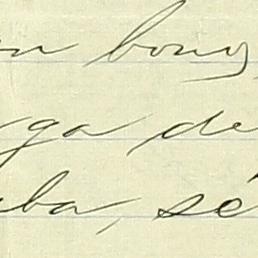 en bong
ga de
ba, sé